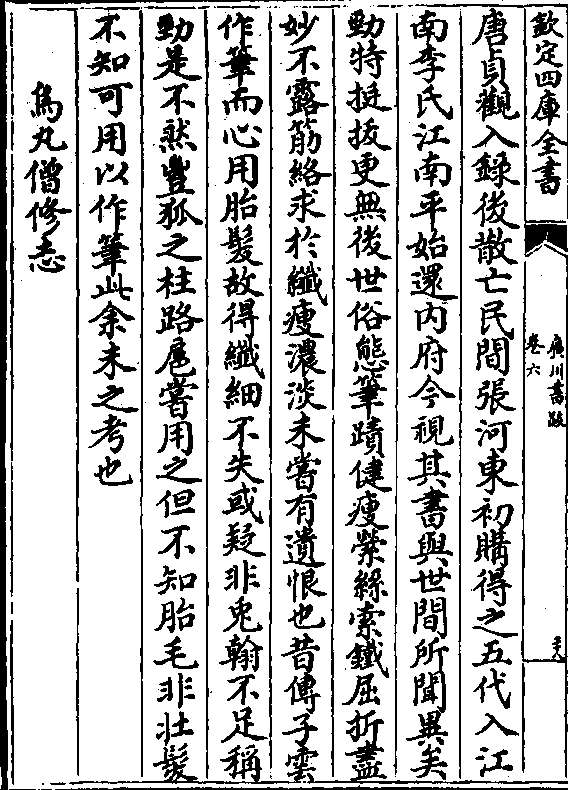 欽定四庫全書
廣川書跋
卷六
唐貞觀入錄後散亡民間張河東初購得之五代入江
南李氏江南平始還内府今視其書與世間所聞異矣
勁特挺拔更無後世俗態筆蹟健瘦縈絲索鐵屈折盡
妙不露筋絡求於纖瘦濃淡未嘗有遺恨也昔傅子雲
作筆而心用胎髮故得纖細不失或疑非兎翰不足稱
勁是不然豐狐之柱路扈嘗用之但不知胎毛非壯髮
不知可用以作筆此余未之考也
烏丸僧修志